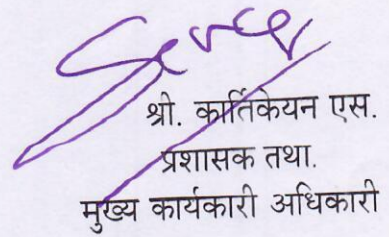 श्री. कार्तिकेयन एस.
प्रशासक तथा.
मुख्य कार्यकारी अधिकारी